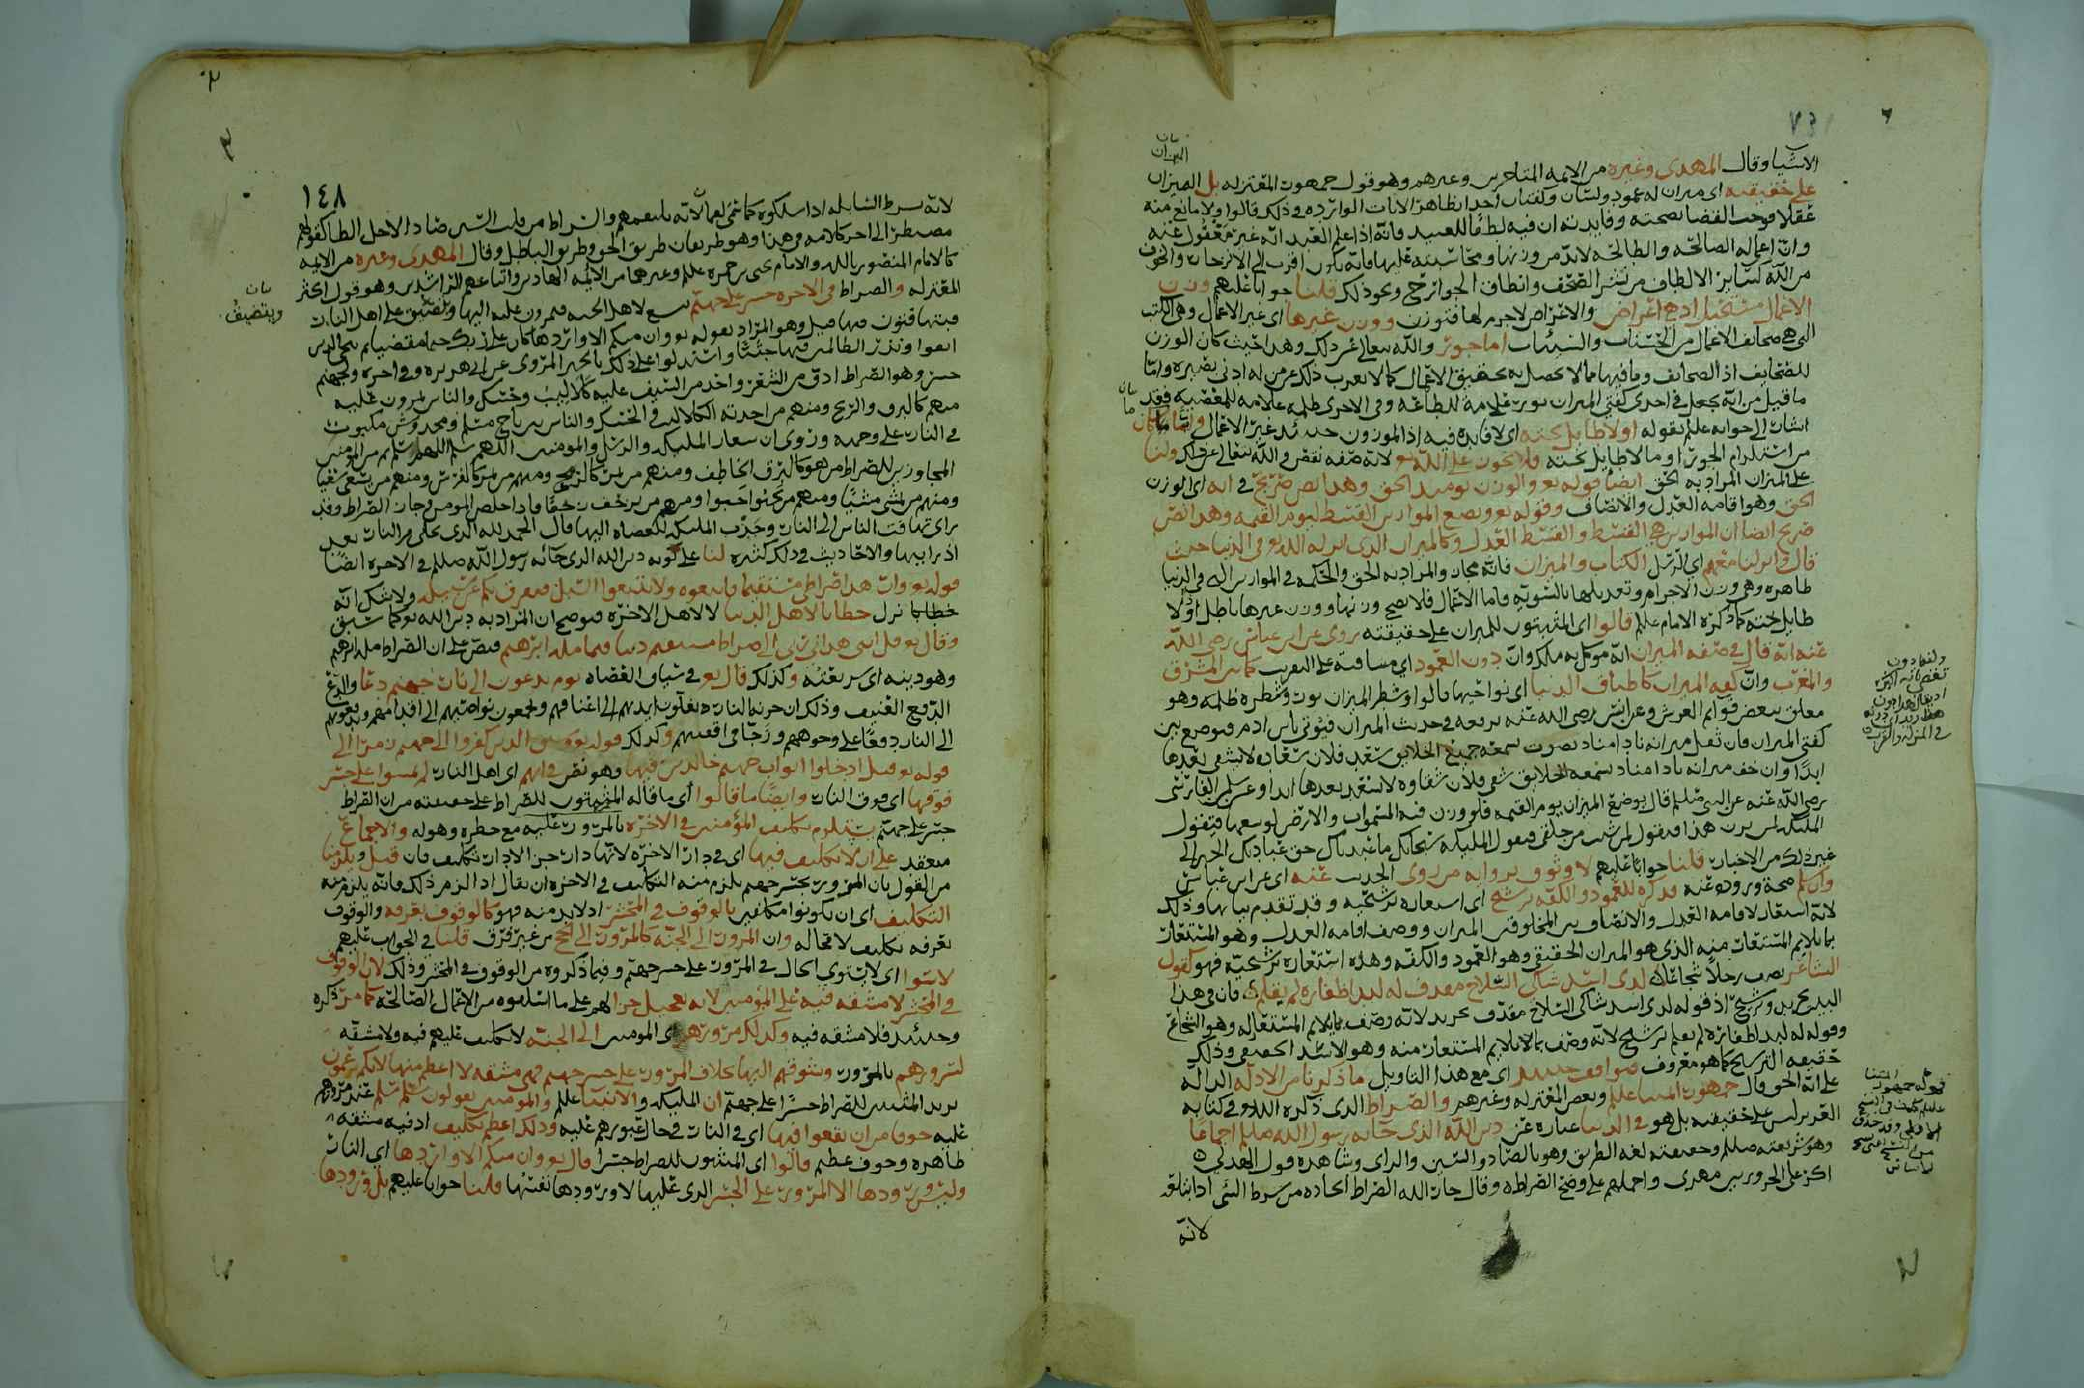 بيان
الميزان
الاشيا وقال المهدي وغيره من الايمه المتاخرين وغيرهم وهو قول جمهور المعتزله بل الميزان
على حقيقته اي ميزان له عمود ولسان وكفتان اخذا بظاهر الايات الوارده في ذلك قالوا ولا مانع منه
عقلا فوجب القضا بصحته وفايدته ان فيه لطفا للعبيد فانه اذا علم العبد انه غير مغفول عنه
وان اعماله الصالحه والطالحه لابد من وزنها ومحاسبته عليها فانه يكون اقرب الى الانزجار والخوف
من الله كساير الالطاف من نشر الصحف وانطاق الجوارح ونحو ذلك قلنا جوابا عليهم وزن
الاعمال مستحيل اذ هي اعراض والاعراض لا جرم لها فتوزن ووزن غيرها اي غير الاعمال وهي الكتب
التي هي صحايف الاعمال من الحسنات والسيئات اما جور والله تعالى عن ذلك وهذا حيث كان الوزن
للصحايف اذ الصحايف وما فيها مما لا يحصل به تحقيق الاعمال كما لا يعزب ذلك عن من له ادنى بصيره واما
ما قيل من انه يجعل في احدى كفتي الميزان نور علامة للطاعه وفي الاخرى ظلمه علامه للمعصيه فقد
اشار الى جوابه علم بقوله اولا طايل تحته اي لا فايده فيه اذ الموزون حينئذ غير الاعمال وايا ما كان
من استلزام الجور او ما لا طايل تحته فلا يجوز على الله تعـ لانه صفه نقص والله تعالى عن ذلك ولنا
على الميزان المراد به الحق ايضا قوله تعـ والوزن يومئذ الحق وهذا نص صريح في انه اي الوزن
الحق وهو اقامه العدل والانصاف وقوله تعـ ونضع الموازين القسط ليوم القيمه وهذا نص
صريح ايضا ان الموازين هي القسط والقسط العدل وكالميزان الذي انزله الله تعـ في الدنيا حيث
قال وانزلنا معهم اي الرسل الكتاب والميزان فانه مجاز والمراد به الحق والحكمه في الموازين التي في الدنيا
ظاهره وهي وزن الاجرام وتعديلها بالسويه فاما الاعمال فلا يصح وزنها ووزن غيرها باطل اذ لا
طايل تحته كما ذكره الامام علم قالوا اي المثبتون للميزان على حقيقته روي عن ابن عباس رضي الله
عنه انه قال في صفه الميزان انه موكل به ملك وان دون العمود اي مسافته على التقريب كما بين المشرق
والمغرب وان كفه الميزان كاطباق الدنيا اي نواحيها قالوا وشطر الميزان نور وشطره ظلمه وهو
معلق ببعض قوايم العرش وعن انس رضي الله عنه يرفعه في حديث الميزان فيؤتى بابن ادم فيوضع بين
كفتي الميزان فان ثقل ميزانه نادا مناد بصوت يسمعه جميع الخلايق سعد فلان سعاده لا يشقى بعدها
ابدا وان خف ميزانه نادا مناد يسمعه الخلايق شقي فلان شقاوه لا يسعد بعدها ابدا وعن سلمن الفارسي
رضي الله عنه عن النبي صلم قال يوضع الميزان يوم القيمه فلو وزن فيه السموات والارض لوسعها فتقول
الملئكه لمن يزن هذا فيقول لمن شئت من خلقي فيقول الملئكه سبحانك ما عبدناك حق عبادتك الخبر الى
غير ذلك من الاخبار قلنا جوابا عليهم لا وثوق برواته من روى الحديث عنه اي عن ابن عباس
وان سلم صحة وروده عنه فذكره للعمود والكفه ترشيح اي استعاره ترشيحيه وقد تقدم بيانها وذلك
لانه استعار لاقامه العدل والانصاف بين المخلوقين الميزان ووصف اقامه العدل وهو المستعار
بما يلايم المستعار منه الذي هو الميزان الحقيقي وهو العمود والكفه وهذه استعاره ترشيحيه فهو كقول
الشاعر يصف رجلا شجاعا لدى اسد شاكي السلاح مقذف له لبد اظفاره لم تقلم فان في هذا
البيت تجريد وترشيح اذ قوله لدى اسد شاكي السلاح مقذف تجريد لانه وصف بما يلايم المستعار له وهو الشجاع
وقوله له لبد اظفاره لم تقلم ترشيح لانه وصف بما لا يلايم المستعار منه وهو الاسد الحقيقي وذلك
حقيقه الترشيح كما هو معروف فيوافق حينئذ اي مع هذا التاويل ما ذكرنا من الادله الداله
على انه الحق وقال جمهور ايمتنا علم وبعض المعتزله وغيرهم والصراط الذي ذكره الله تعـ في كتابه
العزيز ليس على حقيقته بل هو في الدنيا عباره عن دين الله الذي جا به رسول الله صلم اجماعا
وهو شريعته صلم وحقيقته لغه الطريق وهو بالصاد والسين والزاي وشاهده قول الهذلي
اكر على الحروريين مهري واحملهم على وضح الصراط وقال جار الله الصراط الجاده من سرط الشي اذا ابتلعه
لانه
ولفظ دون
قوله جمهور ايمتنا
١٤٨
لانه يسرط السابله اذا سلكوه كما سمي لقما لانه يلتقمهم والصراط من قلب السين صادا لاجل الطا كقوله
مصيطر الى اخر كلامه في هذا وهو طريقان طريق الحق وطريق الباطل وقال المهدي وغيره من الايمه
كالامام المنصور بالله والامام يحيى بن حمزه علم وغيرهما من الايمه الهادين واتباعهم الراشدين وهو قول اكثر
المعتزله والصراط في الاخره جسر على جهنم يتسع لاهل الجنه فيمرون عليه اليها ويتضيق على اهل النار
فيتهافتون فيها قيل وهو المراد بقوله تعـ وان منكم الا واردها كان على ربك حتما مقضيا ثم ننجي الذين
اتقوا ونذر الظالمين فيها جثيا واستدلوا على ذلك بالخبر المروي عن ابي هريره وفي اخره ولجهنم
جسر وهو الصراط ادق من الشعر واحد من السيف عليه كلاليب وحسك والناس يمرون عليه
منهم كالبرق والريح ومنهم من اخذته الكلاليب والحسك والناس بين ناج مسلم ومخدوش مكبوب
في النار على وجهه وروي ان شعار الملئكه والرسل والمومنين اللهم سلم اللهم سلم ثم من المومنين
المجاوزين للصراط من هو كالبرق الخاطف ومنهم من يمر كالريح ومنهم من يمر كالفرس ومنهم من يسعى سعيا
ومنهم من يمشي مشيا ومنهم من يحبوا حبوا ومنهم من يزحف زحفا فاذا خلص المومن وجاز الصراط وقد
راى تهافت الناس الى النار وجذب الملئكه للعصاه اليها قال الحمد لله الذي نجاني من النار بعد
اذ رانيها والاحاديث في ذلك كثيره لنا على كونه دين الله الذي جا به رسول الله صلم في الاخره ايضا
قوله تعـ وان هذا صراطي مستقيما فاتبعوه ولا تتبعوا السبل فتفرق بكم عن سبيله ولا شك انه
خطاب نزل خطابا لاهل الدنيا لا لاهل الاخره فيوضح ان المراد به دين الله تعـ كما سبق
وقال تعـ قل انني هداني ربي الى صراط مستقيم دينا قيما مله ابرهيم فنص على ان الصراط مله ابرهيم
وهو دينه اي شريعته وكذلك قال تعـ في سياق العصاه يوم يدعون الى نار جهنم دعا والدع
الدفع العنيف وذلك ان خزنه النار يغلون ايديهم الى اعناقهم ويجمعون نواصيهم الى اقدامهم ويدفعونهم
الى النار دفعا على وجوههم وزجا في اقفيتهم وكذلك قوله تعـ وسيق الذين كفروا الى جهنم زمرا الى
قوله تعـ قيل ادخلوا ابواب جهنم خالدين فيها وهو نص في انهم اي اهل النار لم يمسوا على جسر
فوقها اي فوق النار وايضا ما قالوا اي ما قاله المثبتون للصراط على حقيقته من ان الصراط
جسر على جهنم يستلزم تكليف المؤمنين في الاخره بالمرور عليه مع خطره وهوله والاجماع
منعقد على ان لا تكليف فيها اي في دار الاخره لانها دار جزا لا دار تكليف فان قيل ويلزمنا
من القول بان المرور بجسر جهنم يلزم منه التكليف في الاخره ان يقال اذا لزم ذلك فانه يلزم منه
التكليف اي ان يكونوا مكلفين بالوقوف في المحشر اذ لابد منه فهو كالوقوف بعرفه والوقوف
بعرفه تكليف لا محاله وان المرور الى الجنه كالمرور الى الحج من غير فرق قلنا في الجواب عليهم
لا سوا اي لا يستوي الحال في المرور على جسر جهنم وفيما ذكروه من الوقوف في المحشر وذلك لان الوقوف
في المحشر لا مشقه فيه على المؤمنين لانه تعجيل جزا لهم على ما اسلفوه من الاعمال الصالحه كما مر ذكره
وحينئذ فلا مشقه فيه وكذلك مرورهم اي المومنين الى الجنه لا تكليف عليهم فيه ولا مشقه
لسرورهم بالمرور وشوقهم اليها بخلاف المرور على جسر جهنم فهي مشقه لا اعظم منها لانكم تزعمون
يريد المثبتين للصراط جسرا على جهنم ان الملئكه والانبيا علم والمومنين يقولون سلم سلم عند مرورهم
عليه خوفا من ان يقعوا فيها اي في النار في حال عبورهم عليه وذلك اعظم تكليف اذ فيه مشقه
ظاهره وخوف عظيم قالوا اي المثبتون للصراط جسرا قال تعـ وان منكم الا واردها اي النار
وليس ورودها الا المرور على الجسر الذي عليها لا ورودها نفسها قلنا جوابا عليهم بل ورودها
بيان
ويتضيق